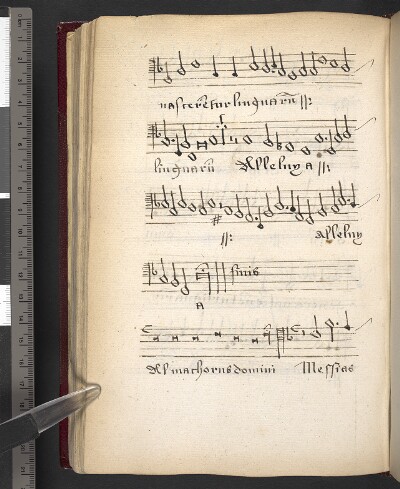 nasceretur linguarũ :||:
linguarũ Alleluya :||:
:||: Alleluy
finis
a
Alma chorus domini Messias